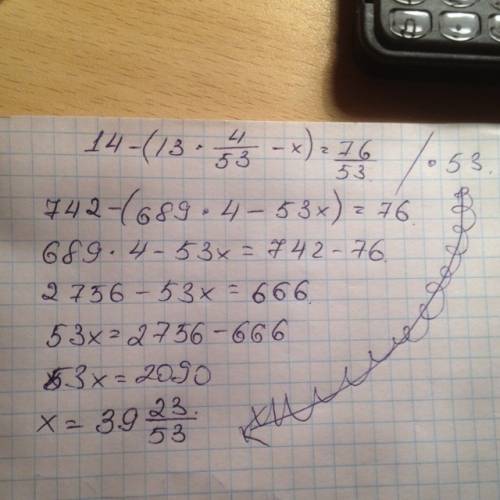 14-(13·4/53-x)=76/53 /·53.
742-(689·4-53x)=76
689·4-53x=742-76
2736-53x=666
53x=2736-666
53x=2090
x=39 23/53